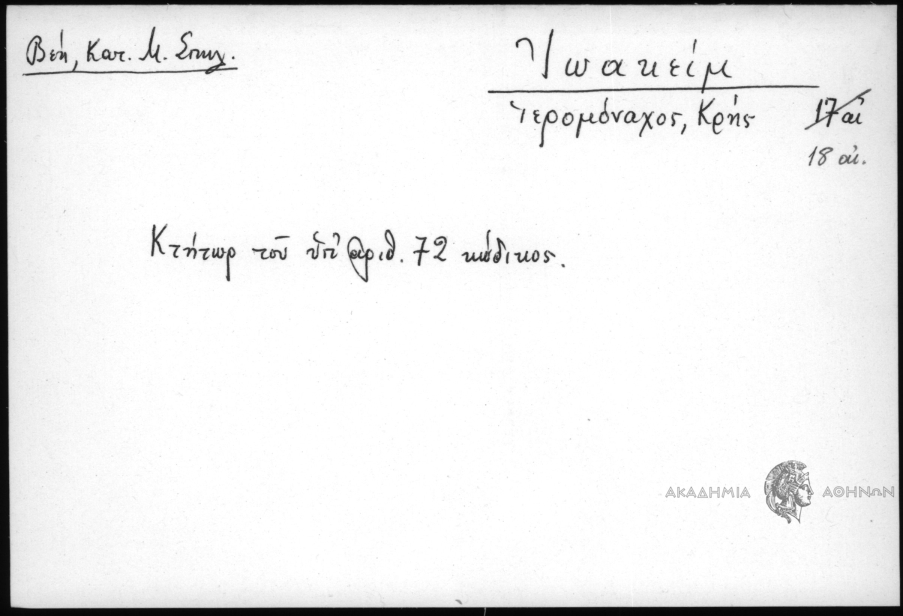 Βέη, Κατ. Μ. Σπηλ.
Ἰωακείμ
ἱερομόναχος, Κρής
17 αἰ
18 αἰ.
Κτήτωρ τοῦ ὑπ' ἀριθ. 72 κώδικος.
ΑΚΑΔΗΜΙΑ ΑΘΗΝΩΝ